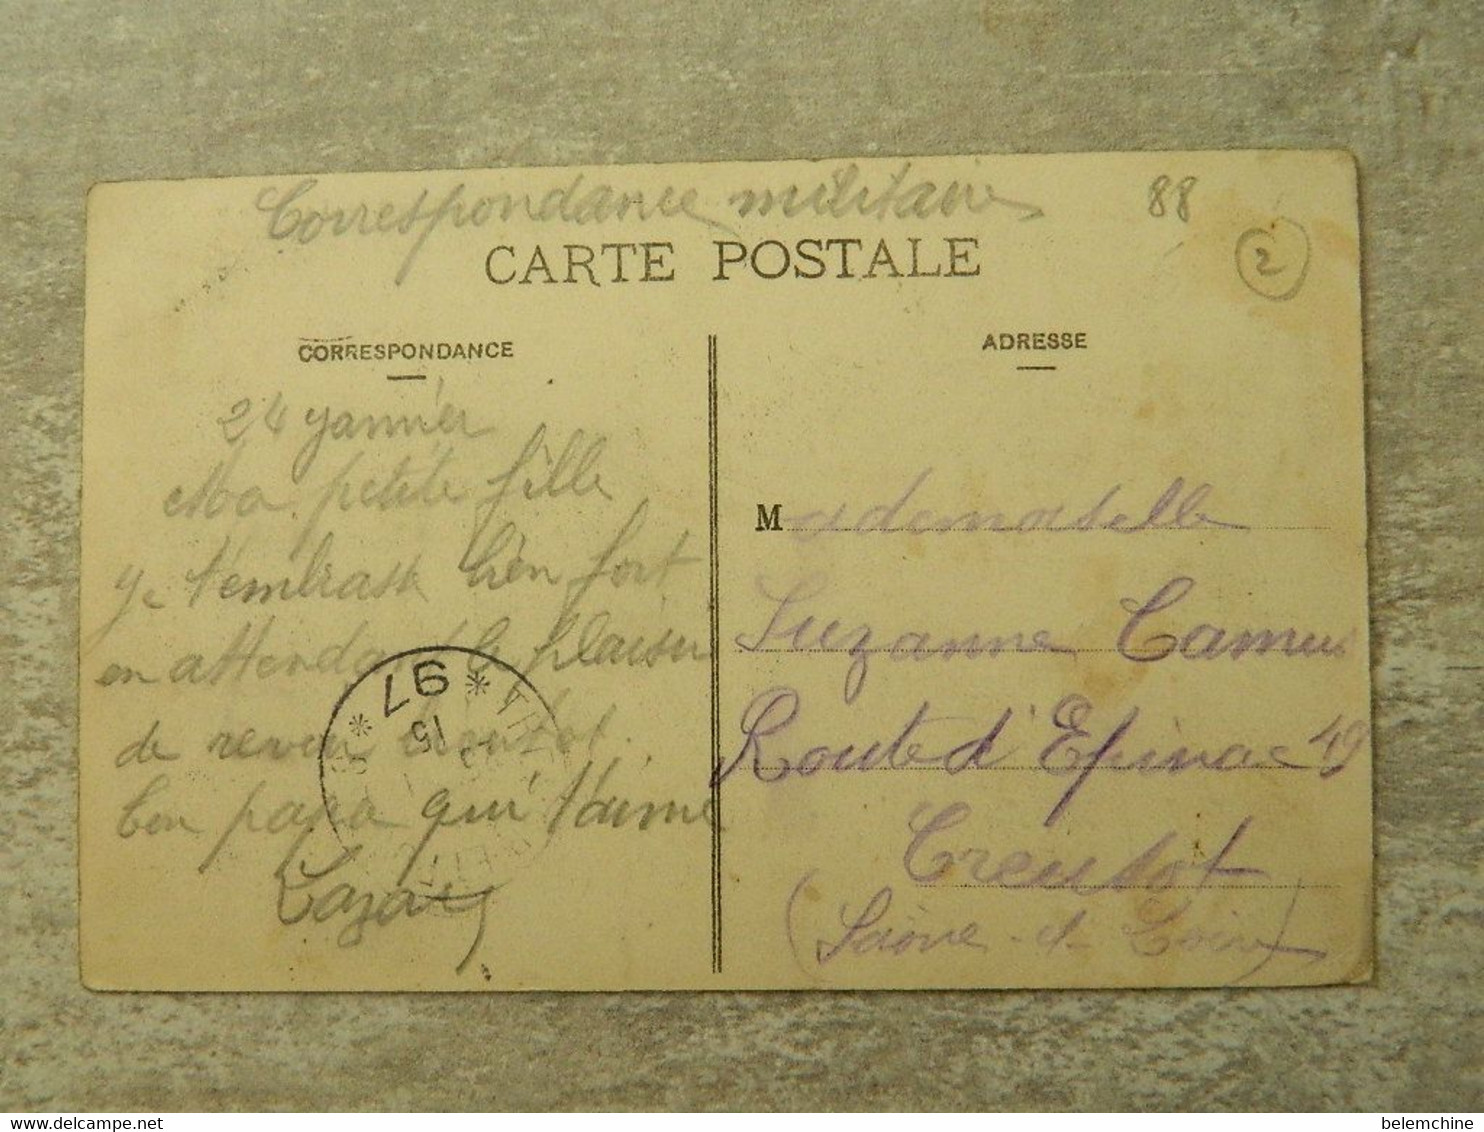 Correspondance militaire
88
2
CARTE POSTALE
CORRESPONDANCE
24 janvier
Ma petite fille
je t'embrasse bien fort
en attendant le plaisir
de revoir bientot.
ton papa qui t'aime
Lazare
* 97 *
15
ADRESSE
Mademoiselle
Suzanne Camus
Route d'Epinac 49
Creusot
(Saône-et-Loire)
belemchine